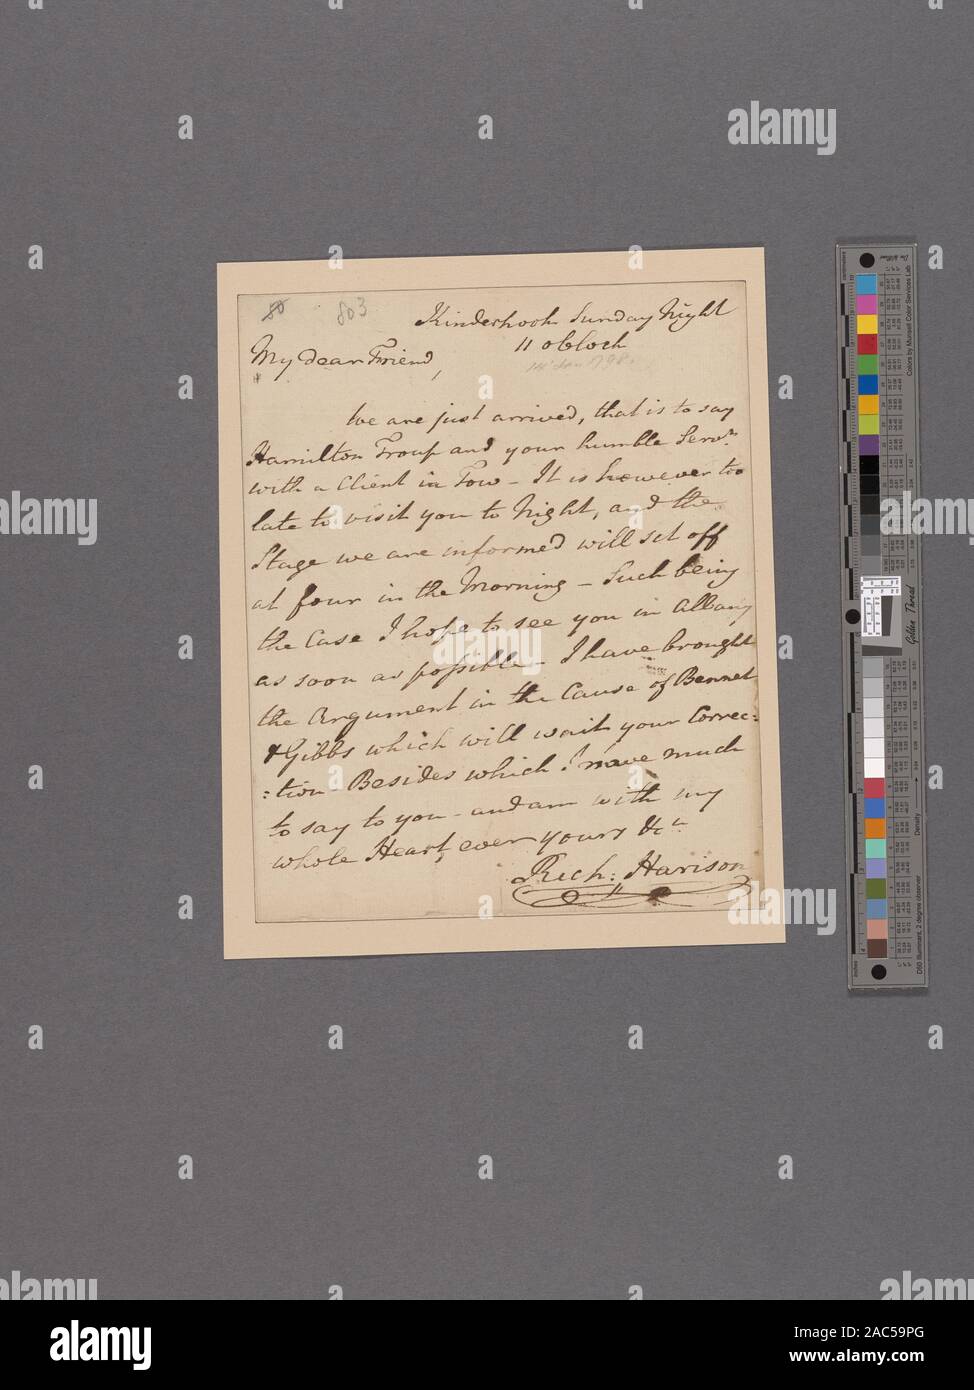 80 803
Kinderhook Sunday Night
11 oClock
My Dear Friend,
We are just arrived, that is to say
Hamilton Troup and your humble Servt.
with a Client in Tow - It is however too
late to visit you to Night, and the
Stage we are informed will set off
at four in the Morning - Such being
the Case I hope to see you in Albany
as soon as possible - I have brought
the Argument in the Cause of Bennet
& Gibbs which will wait your Correc=
=tion Besides which I have much
to say to you - and am with my
whole Heart, ever yours &c
Rich: Harison
alamy
Image ID: 2AC59PG
www.alamy.com